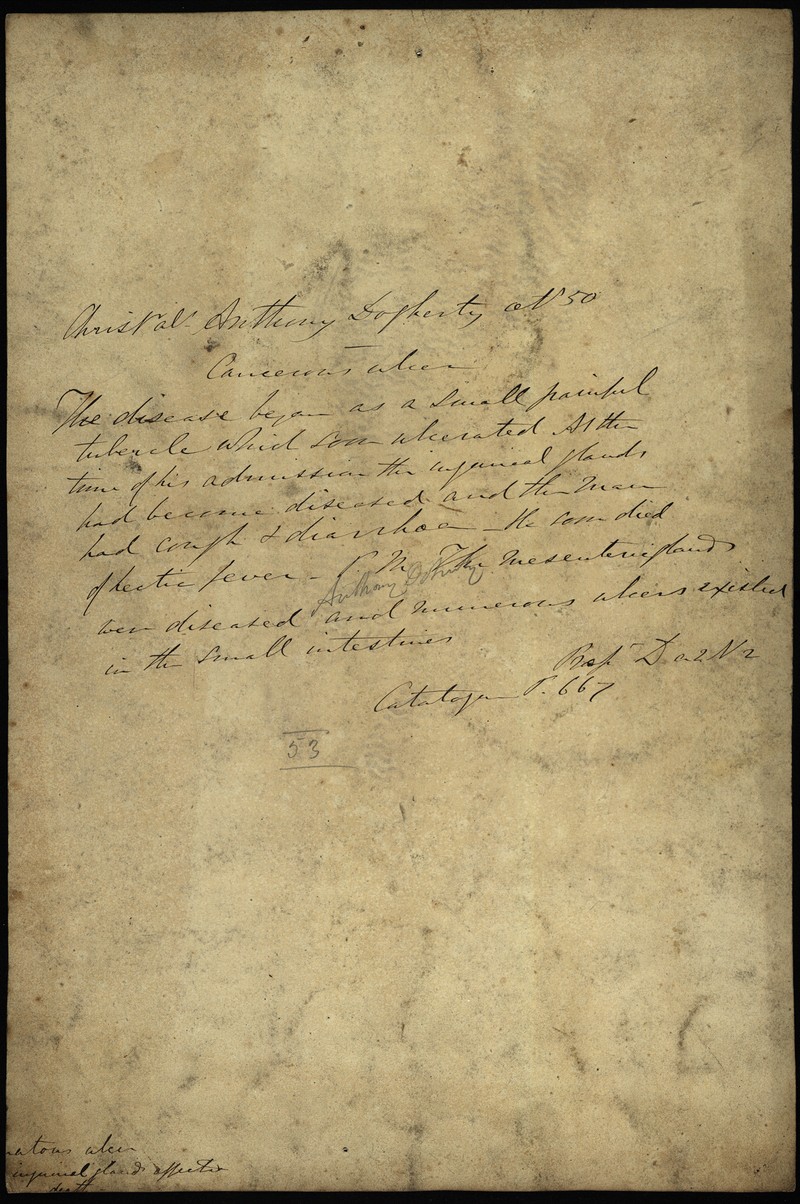 Anthony Dogherty æt 50
Cancerous ulcer
The disease began as a small painful
tubercle which soon ulcerated At the
time of his admission the inguinal glands
had become diseased and the man
had cough & diarrhoea _ He soon died
of hectic fever - P. M. The mesenteric glands
Anthony Doherty
were diseased and numerous ulcers existed
in the small intestines
Catalogue P. 667
53
ulcer
inguinal glands affected
death